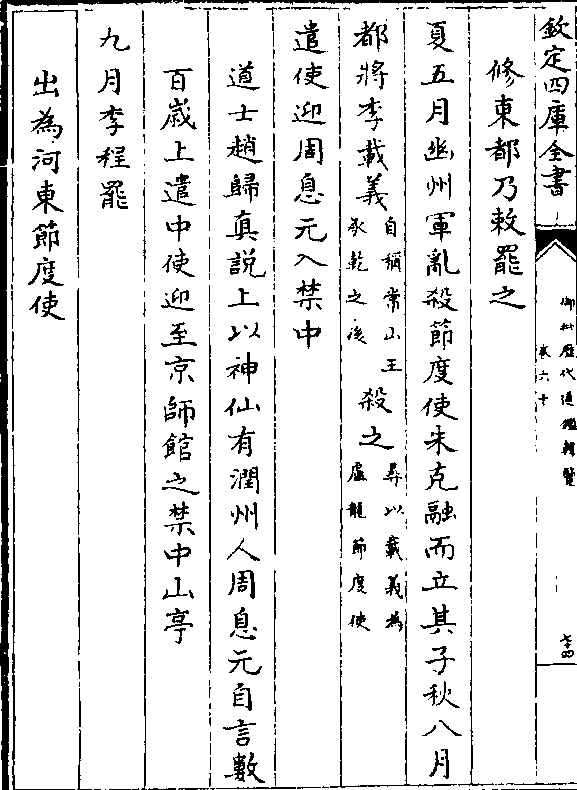 欽定四庫全書
御批歷代通鑑輯覽
卷六十
七十四
修東都乃敕罷之
夏五月幽州軍亂殺節度使朱克融而立其子秋八月
都將李載義
自稱常山王
承乾之後
殺之
尋以載義為
盧龍節度使
遣使迎周息元入禁中
道士趙歸真說上以神仙有潤州人周息元自言數
百歲上遣中使迎至京師館之禁中山亭
九月李程罷
出為河東節度使